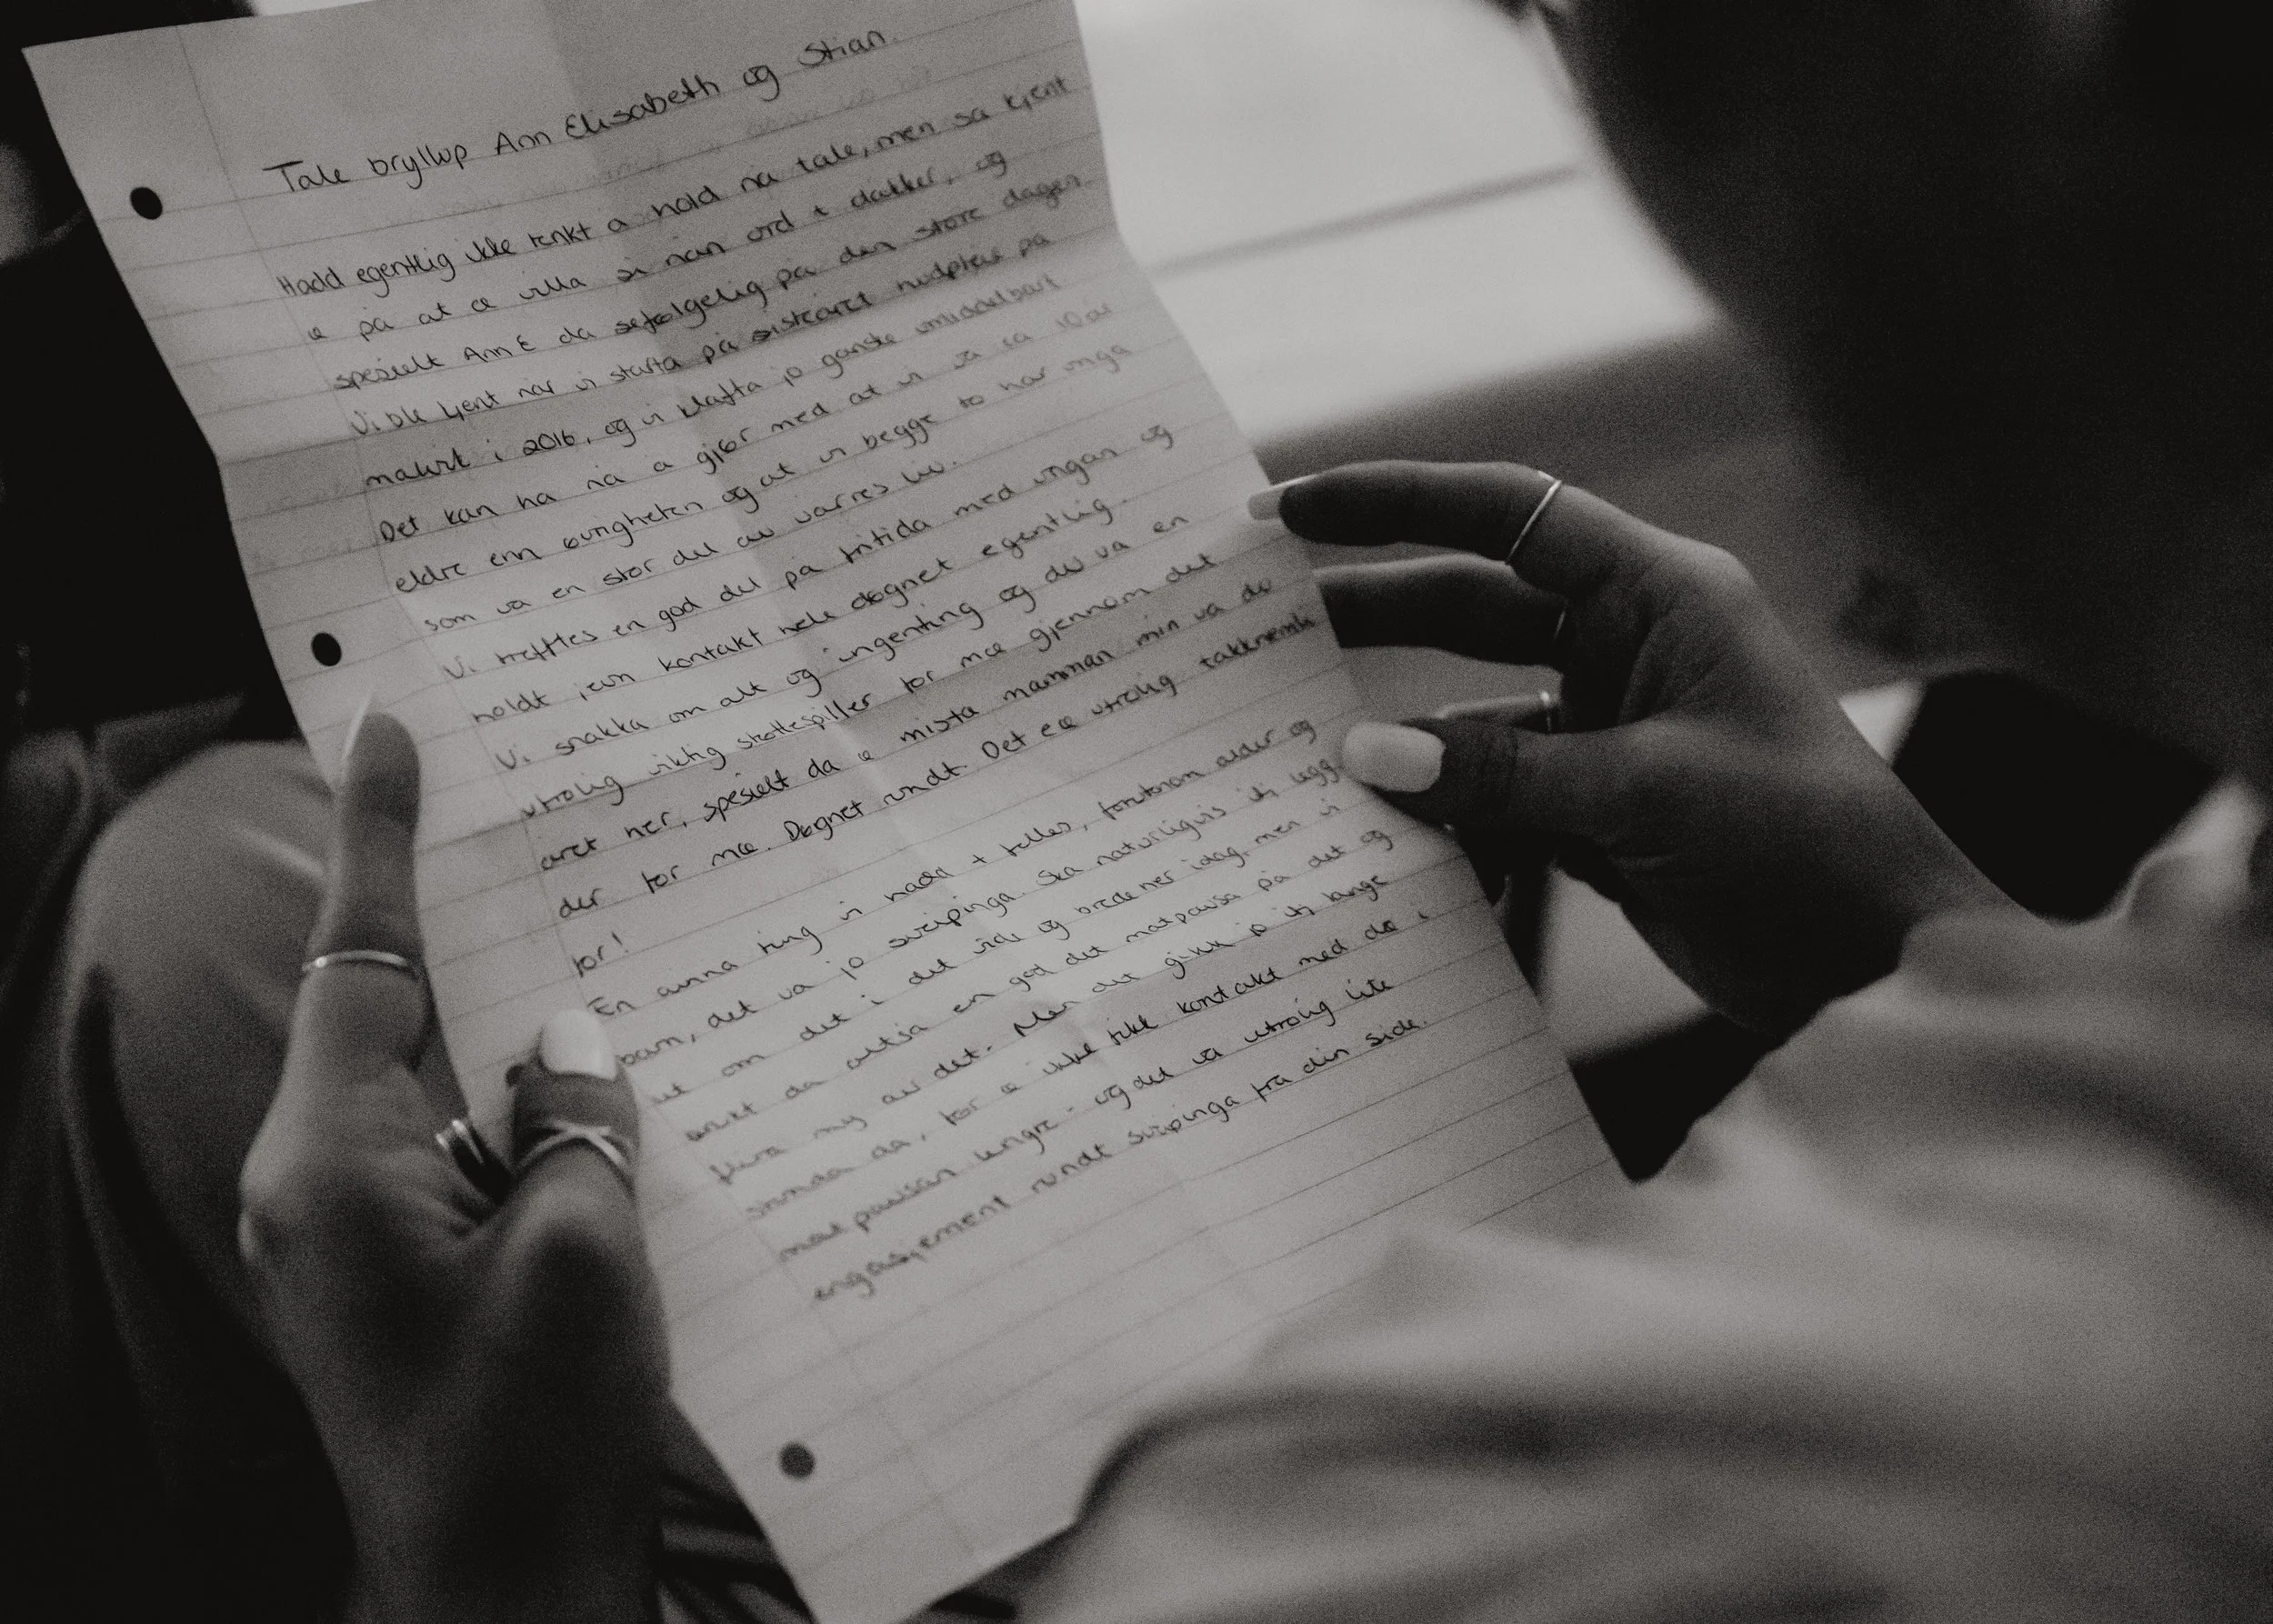 Tale bryllup Ann Elisabeth og Stian.
Hadd egentlig ikke tenkt å hold nå tale, men så kjent
æ på at æ villa si nån ord t dåkker, og
spesielt Ann E da sefølgelig på den store dagen.
Vi ble kjent når vi starta på sisteåret hudpleie på
i 2016, og vi klaffa jo ganske umiddelbart
Det kan ha nå å gjør med at vi va ca 10 år
eldre enn øvrigheten og at vi begge to har unga
som va en stor del av vårres liv.
Vi trefftes en god del på fritida med ungan og
holdt jevn kontakt hele døgnet egentlig.
Vi snakka om alt og ingenting og du va en
utrolig viktig støttespiller for mæ gjennom det
året her, spesielt da æ mista mamman min va du
der for mæ. Døgnet rundt. Det e æ utrolig takknemli
for!
En anna ting vi hadd t felles, foruten alder og
barn, det va jo sveipinga. Ska naturligvis itj legg
ut om det i det vide og brede her idag, men vi
brukt da altså en god del matpausa på det og
my av det. Men det gikk jo itj lange
stunda da, før æ ikke fikk kontakt med dæ i
matpausan lengre - og det va utrolig lite
engasjement rundt sveipinga fra din side.